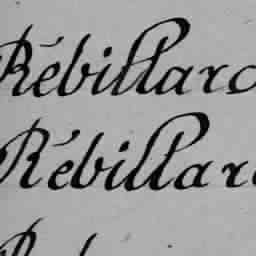 Rébillard
Rébillar